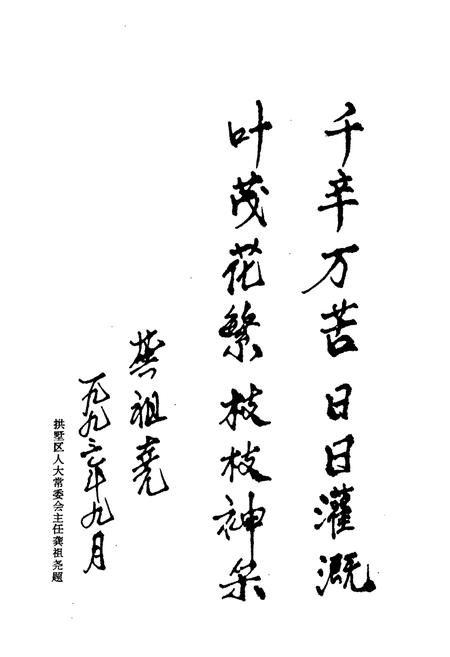 千辛万苦日日灌溉
叶茂花繁枝枝神笨
龚祖尧
一九九三年九月
拱墅区人大常委会主任龚祖尧题